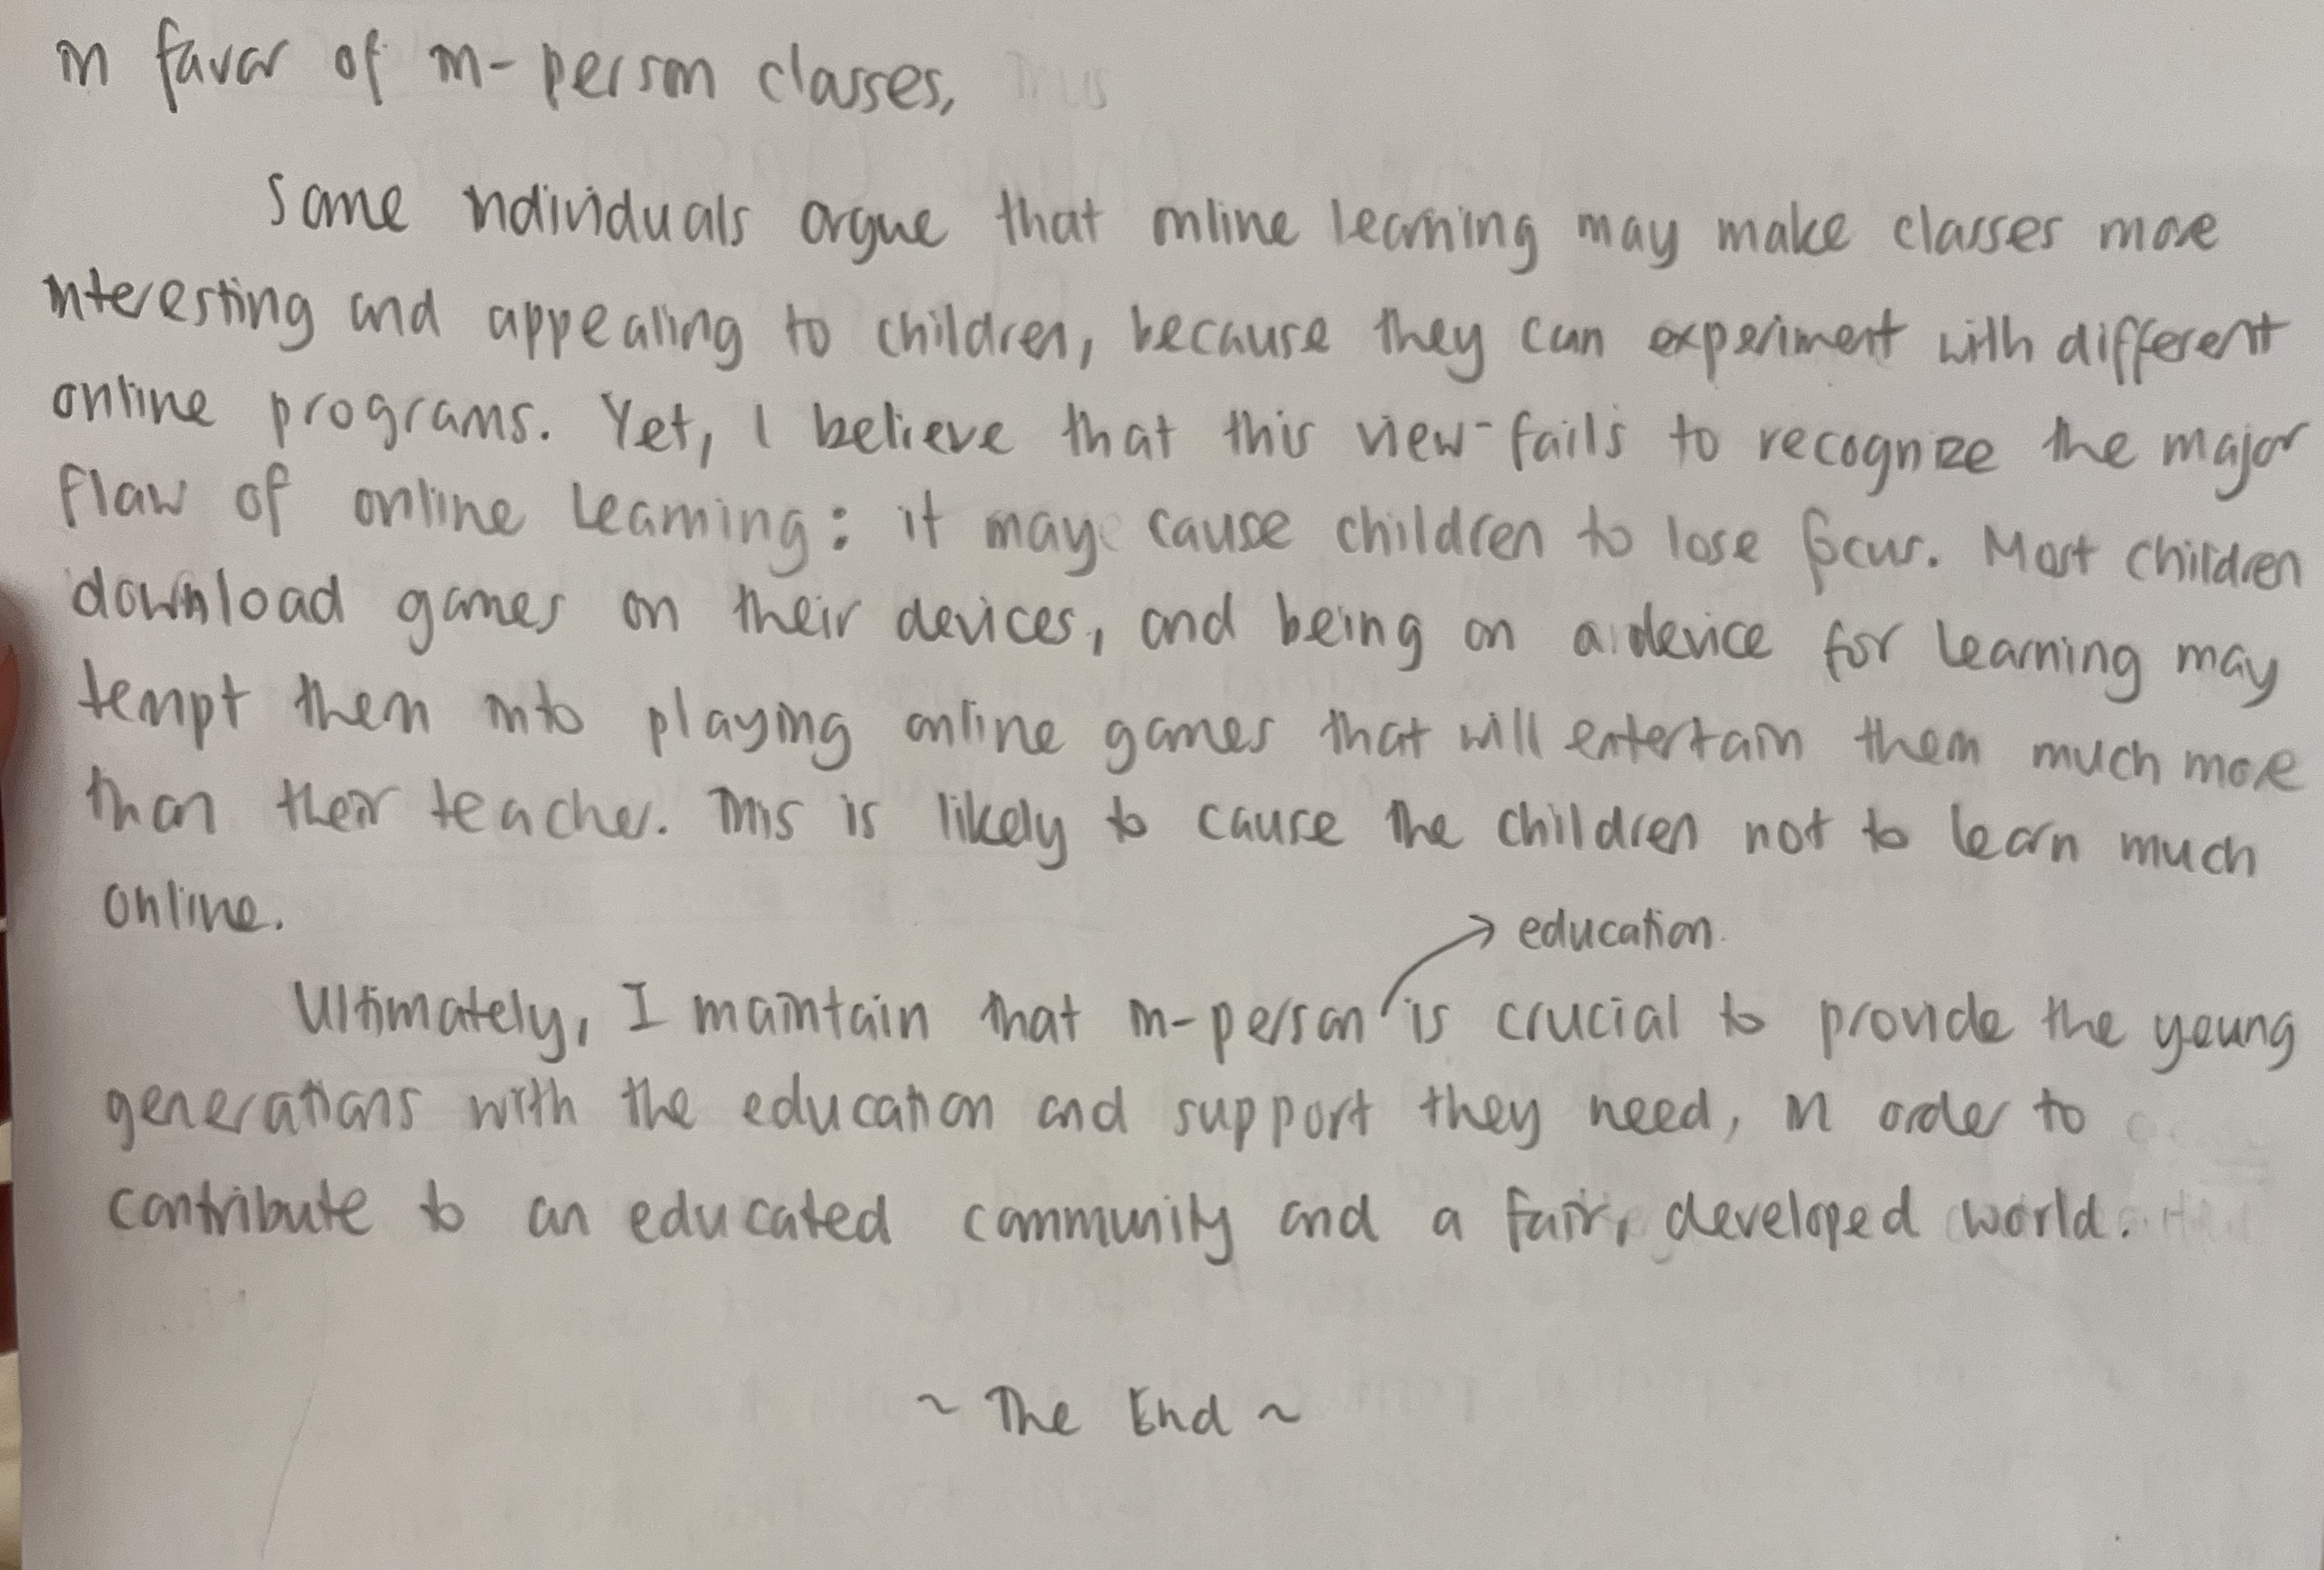 in favor of in-person classes,
Some individuals argue that online learning may make classes more
interesting and appealing to children, because they can experiment with different
online programs. Yet, I believe that this view fails to recognize the major
flaw of online learning: it may cause children to lose focus. Most children
download games on their devices, and being on a device for learning may
tempt them into playing online games that will entertain them much more
than their teacher. This is likely to cause the children not to learn much
online.
→ education
Ultimately, I maintain that in-person is crucial to provide the young
generations with the education and support they need, in order to
contribute to an educated community and a fair, developed world.
~ The End ~